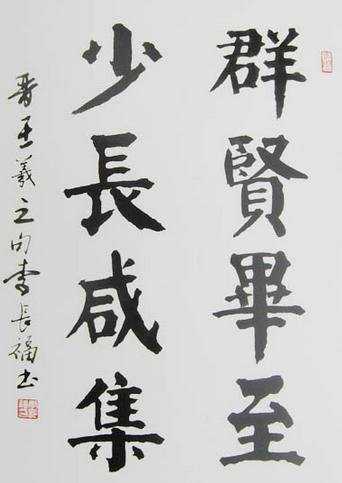 群賢畢至
少長咸集
晋王羲之句李長福书